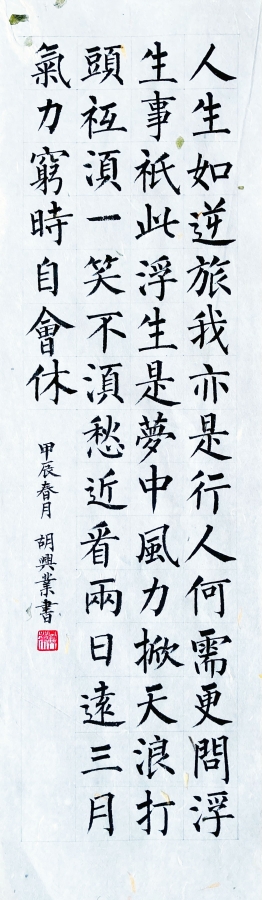 人生如逆旅我亦是行人何需更問浮
生事祇此浮生是夢中風力掀天浪打
頭祗湏一笑不湏愁近看兩日遠三月
氣力窮時自會休
甲辰春月 胡興業書